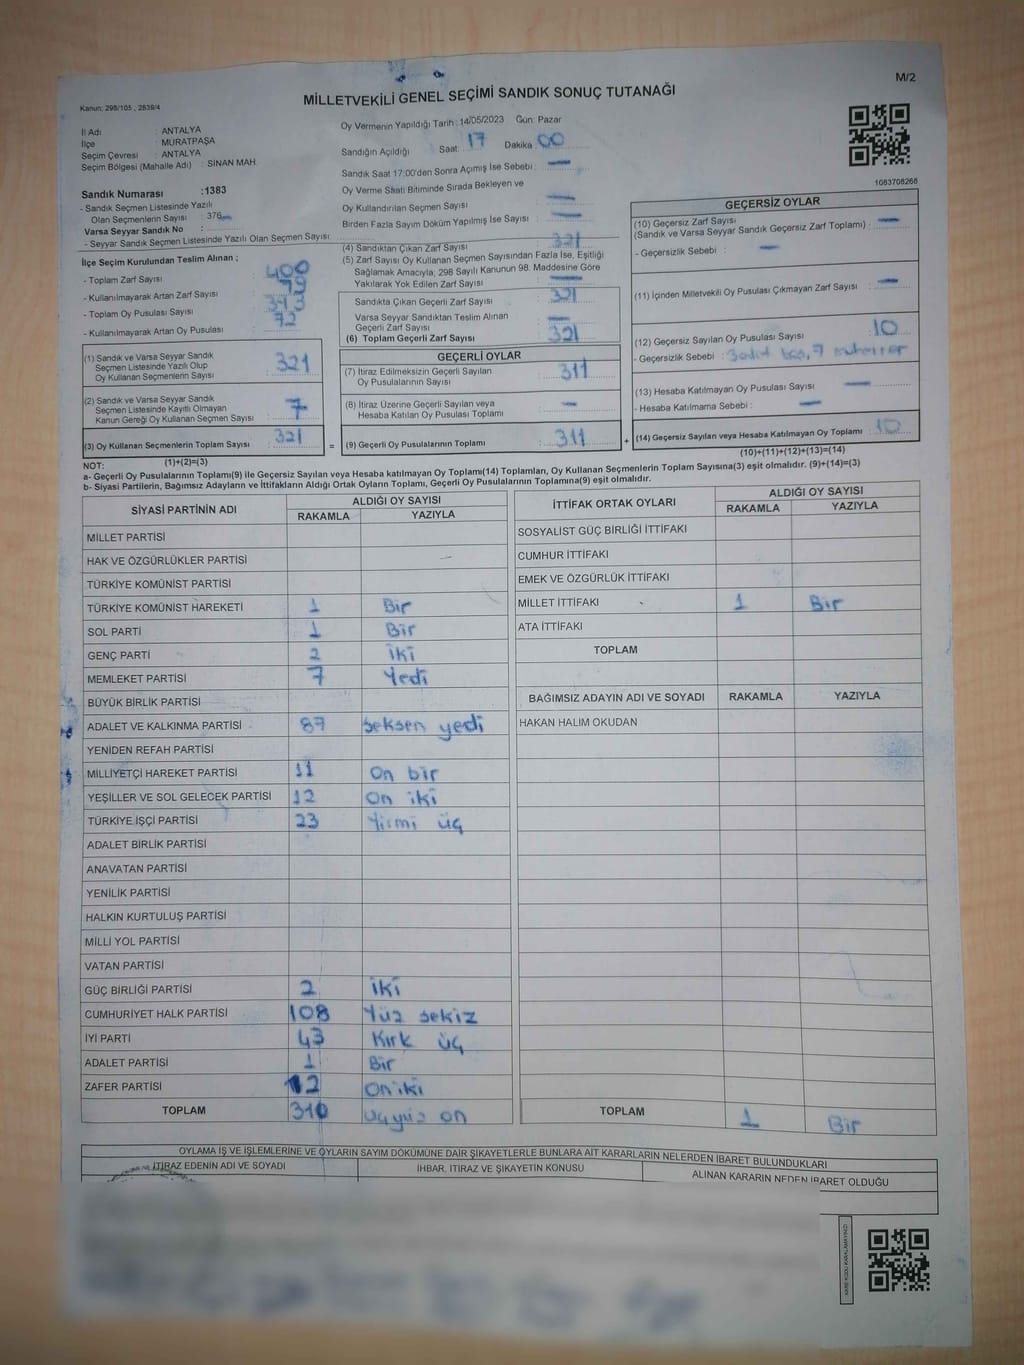 M/2
Kanun: 298/105 , 2839/4
MİLLETVEKİLİ GENEL SEÇİMİ SANDIK SONUÇ TUTANAĞI
İl Adı : ANTALYA
İlçe : MURATPAŞA
Seçim Çevresi : ANTALYA
Seçim Bölgesi (Mahalle Adı) : SİNAN MAH.
Sandık Numarası :1383
- Sandık Seçmen Listesinde Yazılı
Olan Seçmenlerin Sayısı : 376
Varsa Seyyar Sandık No :
- Seyyar Sandık Seçmen Listesinde Yazılı Olan Seçmen Sayısı:
İlçe Seçim Kurulundan Teslim Alınan ;
- Toplam Zarf Sayısı : 400
- Kullanılmayarak Artan Zarf Sayısı : 79
- Toplam Oy Pusulası Sayısı : 393
- Kullanılmayarak Artan Oy Pusulası : 72
(1) Sandık ve Varsa Seyyar Sandık
Seçmen Listesinde Yazılı Olup
Oy Kullanan Seçmenlerin Sayısı : 321
(2) Sandık ve Varsa Seyyar Sandık
Seçmen Listesinde Kayıtlı Olmayan
Kanun Gereği Oy Kullanan Seçmen Sayısı : 7
(3) Oy Kullanan Seçmenlerin Toplam Sayısı : 321
(1)+(2)=(3)
Oy Vermenin Yapıldığı Tarih : 14/05/2023 Gün: Pazar
Sandığın Açıldığı Saat: 17 Dakika : 00
Sandık Saat 17:00'den Sonra Açımış İse Sebebi : —
Oy Verme Saati Bitiminde Sırada Bekleyen ve
Oy Kullandırılan Seçmen Sayısı : —
Birden Fazla Sayım Döküm Yapılmış İse Sayısı : —
(4) Sandıktan Çıkan Zarf Sayısı : 321
(5) Zarf Sayısı Oy Kullanan Seçmen Sayısından Fazla İse, Eşitliği
Sağlamak Amacıyla, 298 Sayılı Kanunun 98. Maddesine Göre
Yakılarak Yok Edilen Zarf Sayısı : —
Sandıkta Çıkan Geçerli Zarf Sayısı : 321
Varsa Seyyar Sandıktan Teslim Alınan
Geçerli Zarf Sayısı : —
(6) Toplam Geçerli Zarf Sayısı : 321
GEÇERLİ OYLAR
(7) İtiraz Edilmeksizin Geçerli Sayılan
Oy Pusulalarının Sayısı : 311
(8) İtiraz Üzerine Geçerli Sayılan veya
Hesaba Katılan Oy Pusulası Toplamı : —
= (9) Geçerli Oy Pusulalarının Toplamı : 311 +
1083708268
GEÇERSİZ OYLAR
(10) Geçersiz Zarf Sayısı
(Sandık ve Varsa Seyyar Sandık Geçersiz Zarf Toplamı) : —
- Geçersizlik Sebebi : —
(11) İçinden Milletvekili Oy Pusulası Çıkmayan Zarf Sayısı : —
(12) Geçersiz Sayılan Oy Pusulası Sayısı : 10
- Geçersizlik Sebebi : 3 adet boş, 7
(13) Hesaba Katılmayan Oy Pusulası Sayısı : —
- Hesaba Katılmama Sebebi : —
(14) Geçersiz Sayılan veya Hesaba Katılmayan Oy Toplamı : 10
(10)+(11)+(12)+(13)=(14)
NOT:
a- Geçerli Oy Pusulalarının Toplamı(9) ile Geçersiz Sayılan veya Hesaba katılmayan Oy Toplamı(14) Toplamları, Oy Kullanan Seçmenlerin Toplam Sayısına(3) eşit olmalıdır. (9)+(14)=(3)
b- Siyasi Partilerin, Bağımsız Adayların ve İttifakların Aldığı Ortak Oyların Toplamı, Geçerli Oy Pusulalarının Toplamına(9) eşit olmalıdır.
SİYASİ PARTİNİN ADI ALDIĞI OY SAYISI
RAKAMLA YAZIYLA
MİLLET PARTİSİ
HAK VE ÖZGÜRLÜKLER PARTİSİ —
TÜRKİYE KOMÜNİST PARTİSİ
TÜRKİYE KOMÜNİST HAREKETİ 1 Bir
SOL PARTİ 1 Bir
GENÇ PARTİ 2 iki
MEMLEKET PARTİSİ 7 Yedi
BÜYÜK BİRLİK PARTİSİ
ADALET VE KALKINMA PARTİSİ 87 Seksen yedi
YENİDEN REFAH PARTİSİ
MİLLİYETÇİ HAREKET PARTİSİ 11 On bir
YEŞİLLER VE SOL GELECEK PARTİSİ 12 On iki
TÜRKİYE İŞÇİ PARTİSİ 23 Yirmi üç
ADALET BİRLİK PARTİSİ
ANAVATAN PARTİSİ
YENİLİK PARTİSİ
HALKIN KURTULUŞ PARTİSİ
MİLLİ YOL PARTİSİ
VATAN PARTİSİ
GÜÇ BİRLİĞİ PARTİSİ 2 iki
CUMHURİYET HALK PARTİSİ 108 Yüz sekiz
İYİ PARTİ 43 Kırk üç
ADALET PARTİSİ 1 Bir
ZAFER PARTİSİ 12 On iki
TOPLAM 310 Üçyüz on
İTTİFAK ORTAK OYLARI ALDIĞI OY SAYISI
RAKAMLA YAZIYLA
SOSYALİST GÜÇ BİRLİĞİ İTTİFAKI
CUMHUR İTTİFAKI
EMEK VE ÖZGÜRLÜK İTTİFAKI
MİLLET İTTİFAKI 1 Bir
ATA İTTİFAKI
TOPLAM
BAĞIMSIZ ADAYIN ADI VE SOYADI RAKAMLA YAZIYLA
HAKAN HALIM OKUDAN
TOPLAM 1 Bir
OYLAMA İŞ VE İŞLEMLERİNE VE OYLARIN SAYIM DÖKÜMÜNE DAİR ŞİKAYETLERLE BUNLARA AİT KARARLARIN NELERDEN İBARET BULUNDUKLARI
İTİRAZ EDENİN ADI VE SOYADI İHBAR, İTİRAZ VE ŞİKAYETİN KONUSU ALINAN KARARIN NEDEN İBARET OLDUĞU
KARE KODU KARALAMAYINIZ!